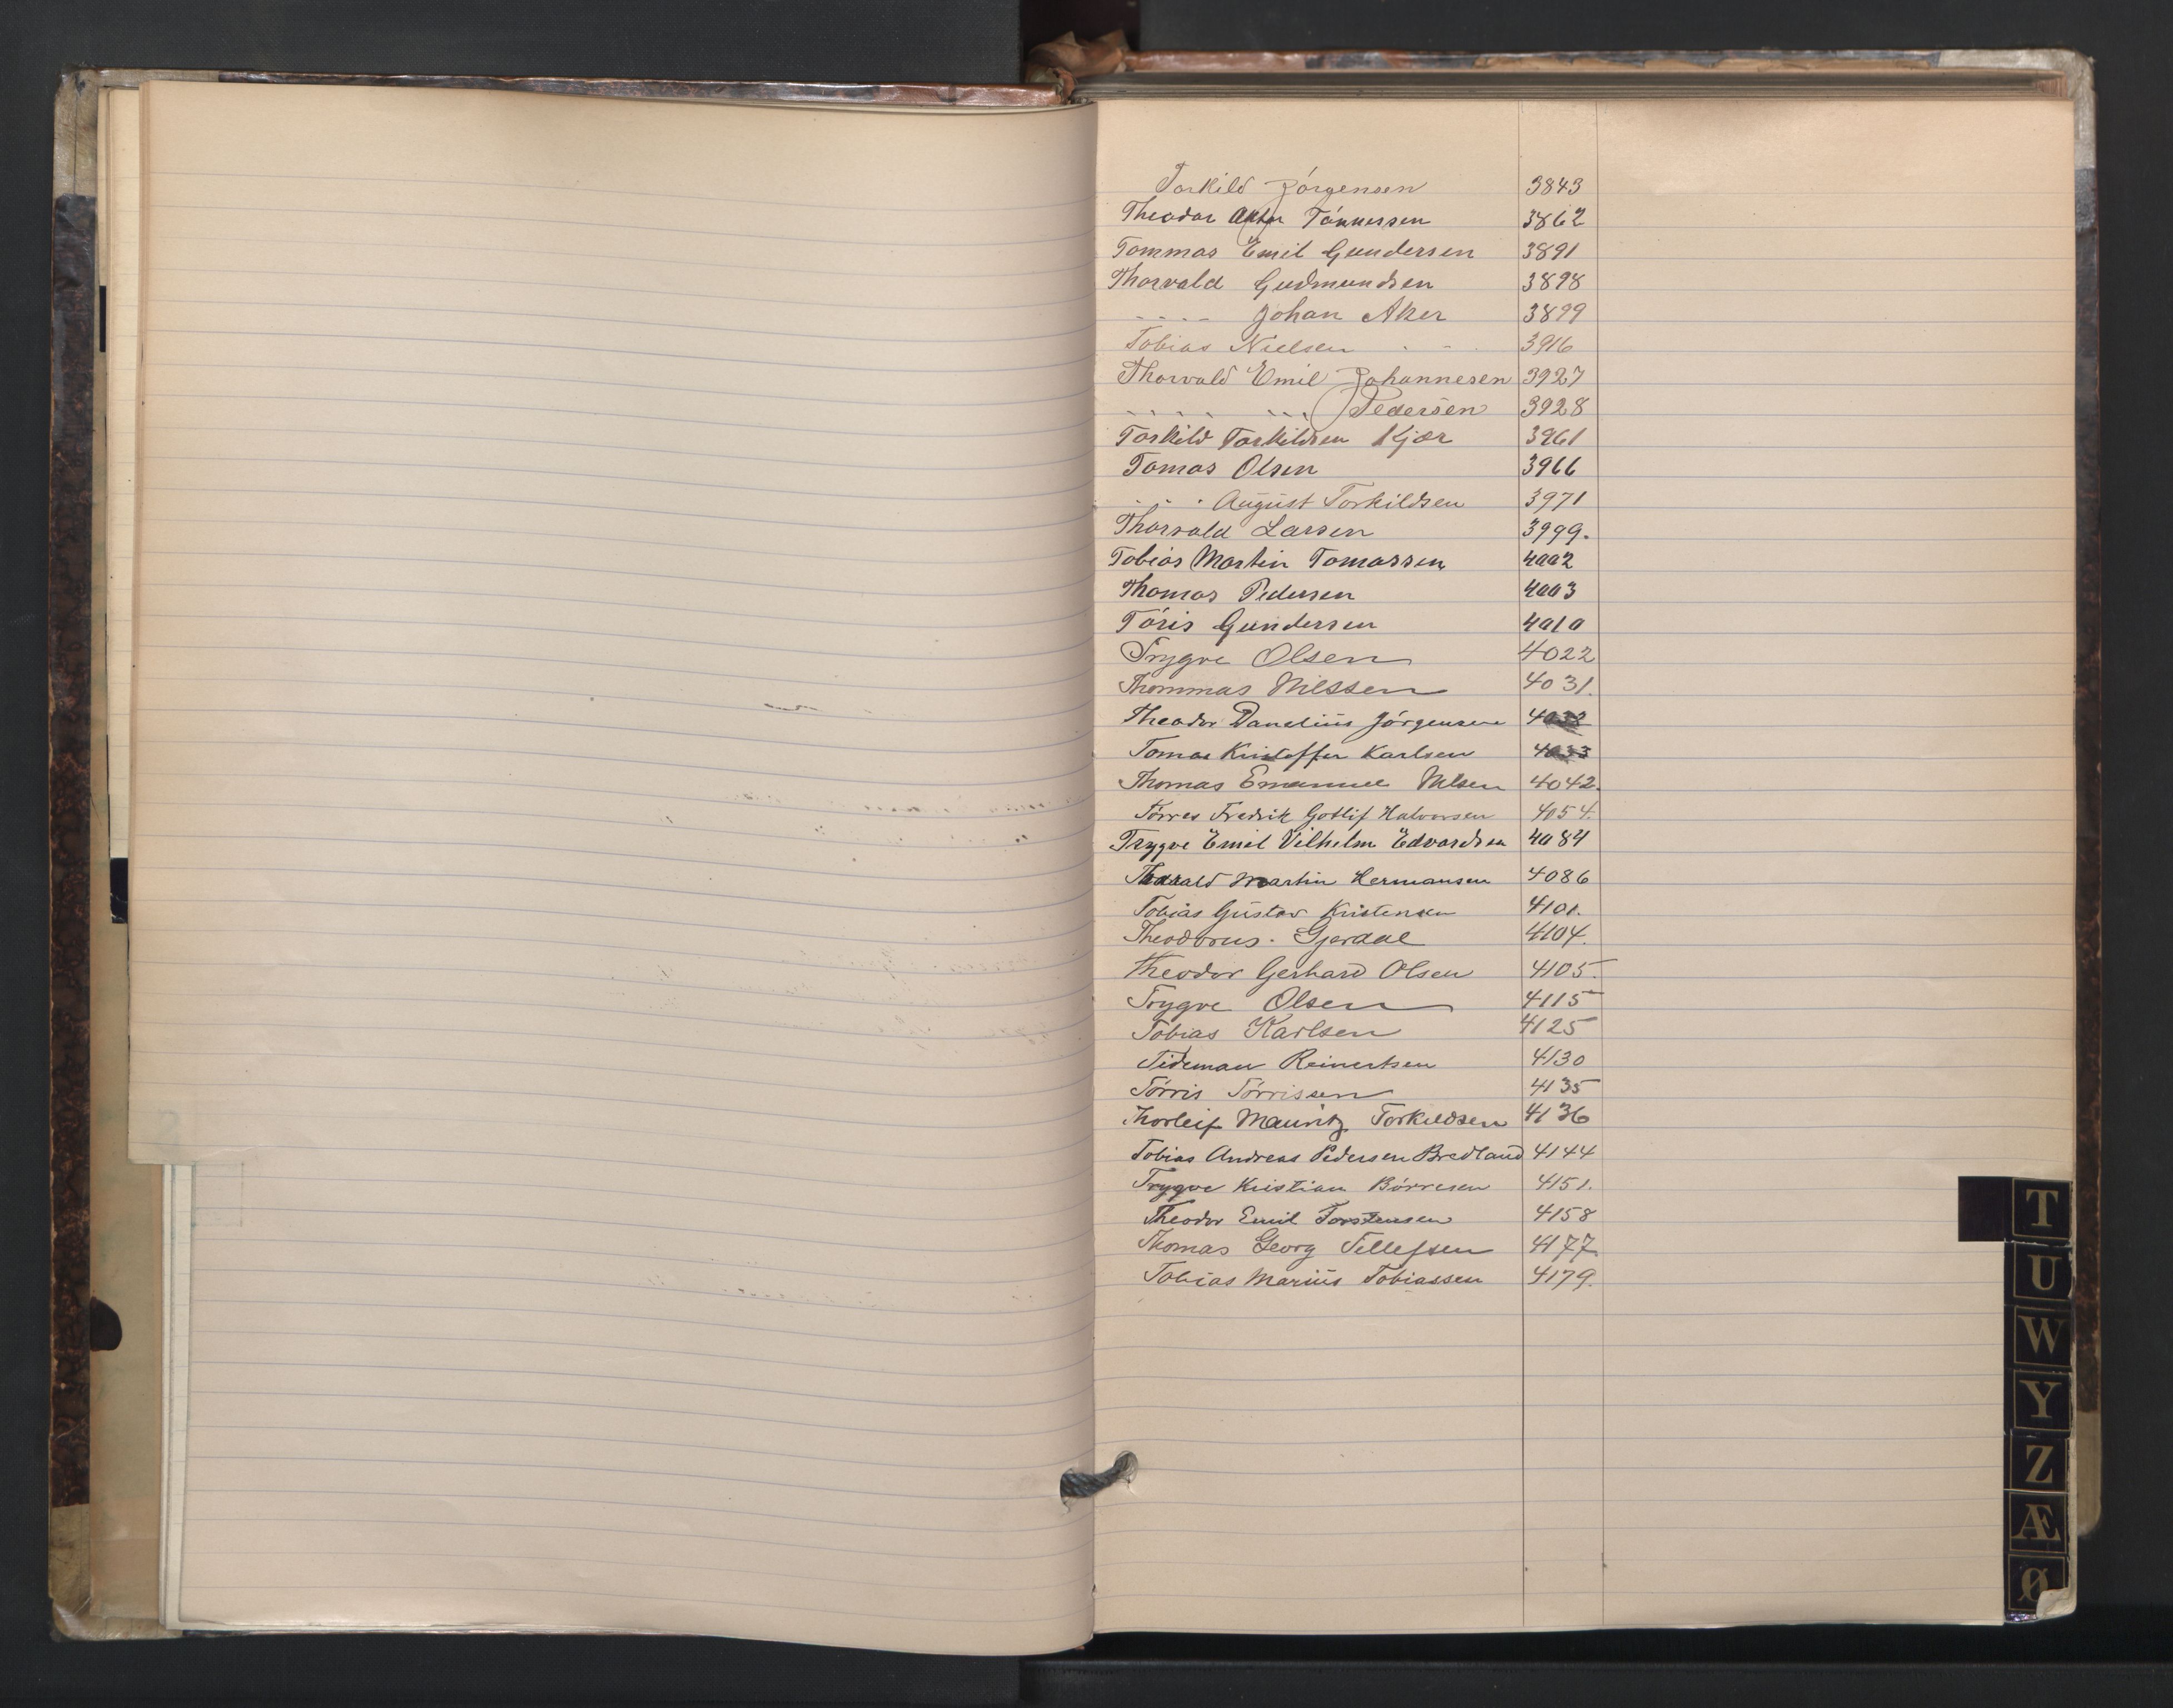 Torkild Jörgensen 3843
Theodor Tönnessen 3862
Tommas Emil Gundersen 3891
Thorvald Gudmundsen 3898
- - - - Johan Aker 3899
Tobias Nielsen - - 3916
Thorvald Emil Johannesen 3927
- - - - - - - Pedersen 3928
Torkild Torkildsen Kjær 3961
Tomas Olsen 3966
- - - August Torkildsen 3971
Thorvald Larsen 3999.
Tobias Martin Tomassen 4002
Thomas Pedersen 4003
Töris Gundersen 4010
Trygve Olsen 4022
Thommas Nilssen 4031.
Theodor Danelius Jörgensen 4032
Tomas Kristoffer Karlsen 4033
Thomas Emanuel Nilsen 4042.
Törres Fredrik Gotlif Halvorsen 4054.
Trygve Emil Vilhelm Edvardsen 4084
Martin Hermansen 4086
Tobias Gustav Kristensen 4101.
Theodorus. Gjerdal 4104.
Theodor Gerhard Olsen 4105.
Trygve Olsen 4115
Tobias Karlsen 4125
Tideman Reinertsen 4130
Törris Törrisen 4135
Thorleif Mauritz Torkildsen 4136
Tobias Andreas Pedersen Bredland 4144
Trygve Kristian Börresen 4151.
Theodor Emil Torstensen 4158
Thomas Georg Tellefsen 4177
Tobias Marius Tobiassen 4179.
T
U
W
Y
Z
Æ
Ø